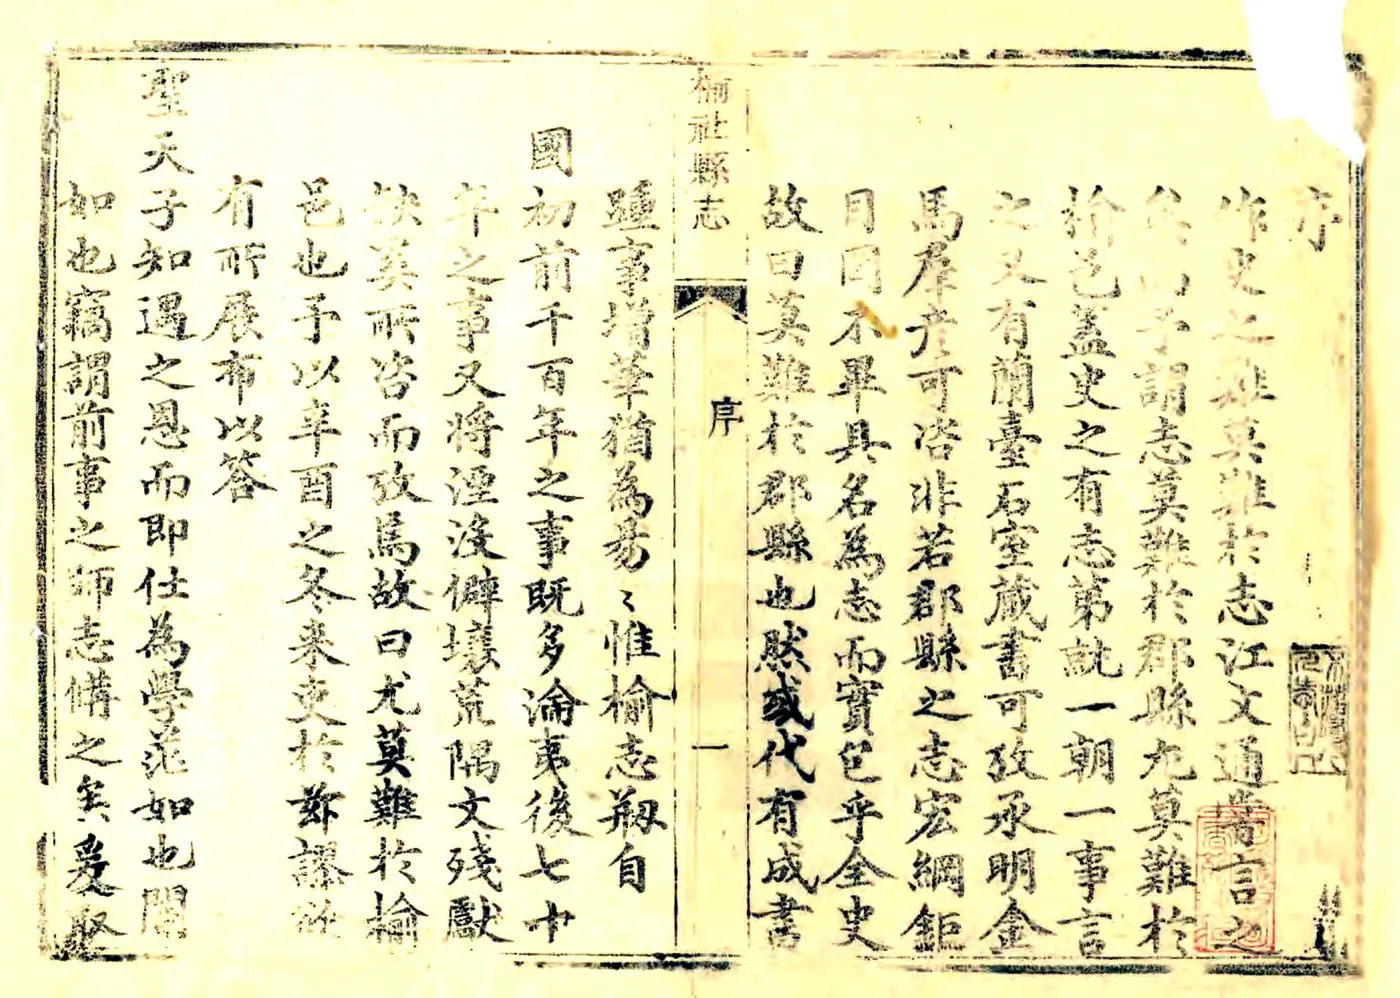 序
作史之難莫難於志江文通嘗言之
矣以予謂志莫難於郡縣尤莫難於
榆邑蓋史之有志第就一朝一事言
之又有蘭臺石室藏書可攷承明金
馬羣彦可咨非若郡縣之志宏綱鉅
目罔不畢具名為志而實包乎全史
故曰莫難於郡縣也然或代有成書
榆社縣志
序
一
踵事增華猶為易〻惟榆志剏自
國初前千百年之事既多淪夷後七十
年之事又將湮沒僻壤荒隅文殘獻
缺奚所咨而攷焉故曰尤莫難於榆
邑也予以辛酉之冬来吏於茲謬欲
有所展布以答
聖天子知遇之恩而即仕為學茫如也閒
如也竊謂前事之師志備之矣爰取